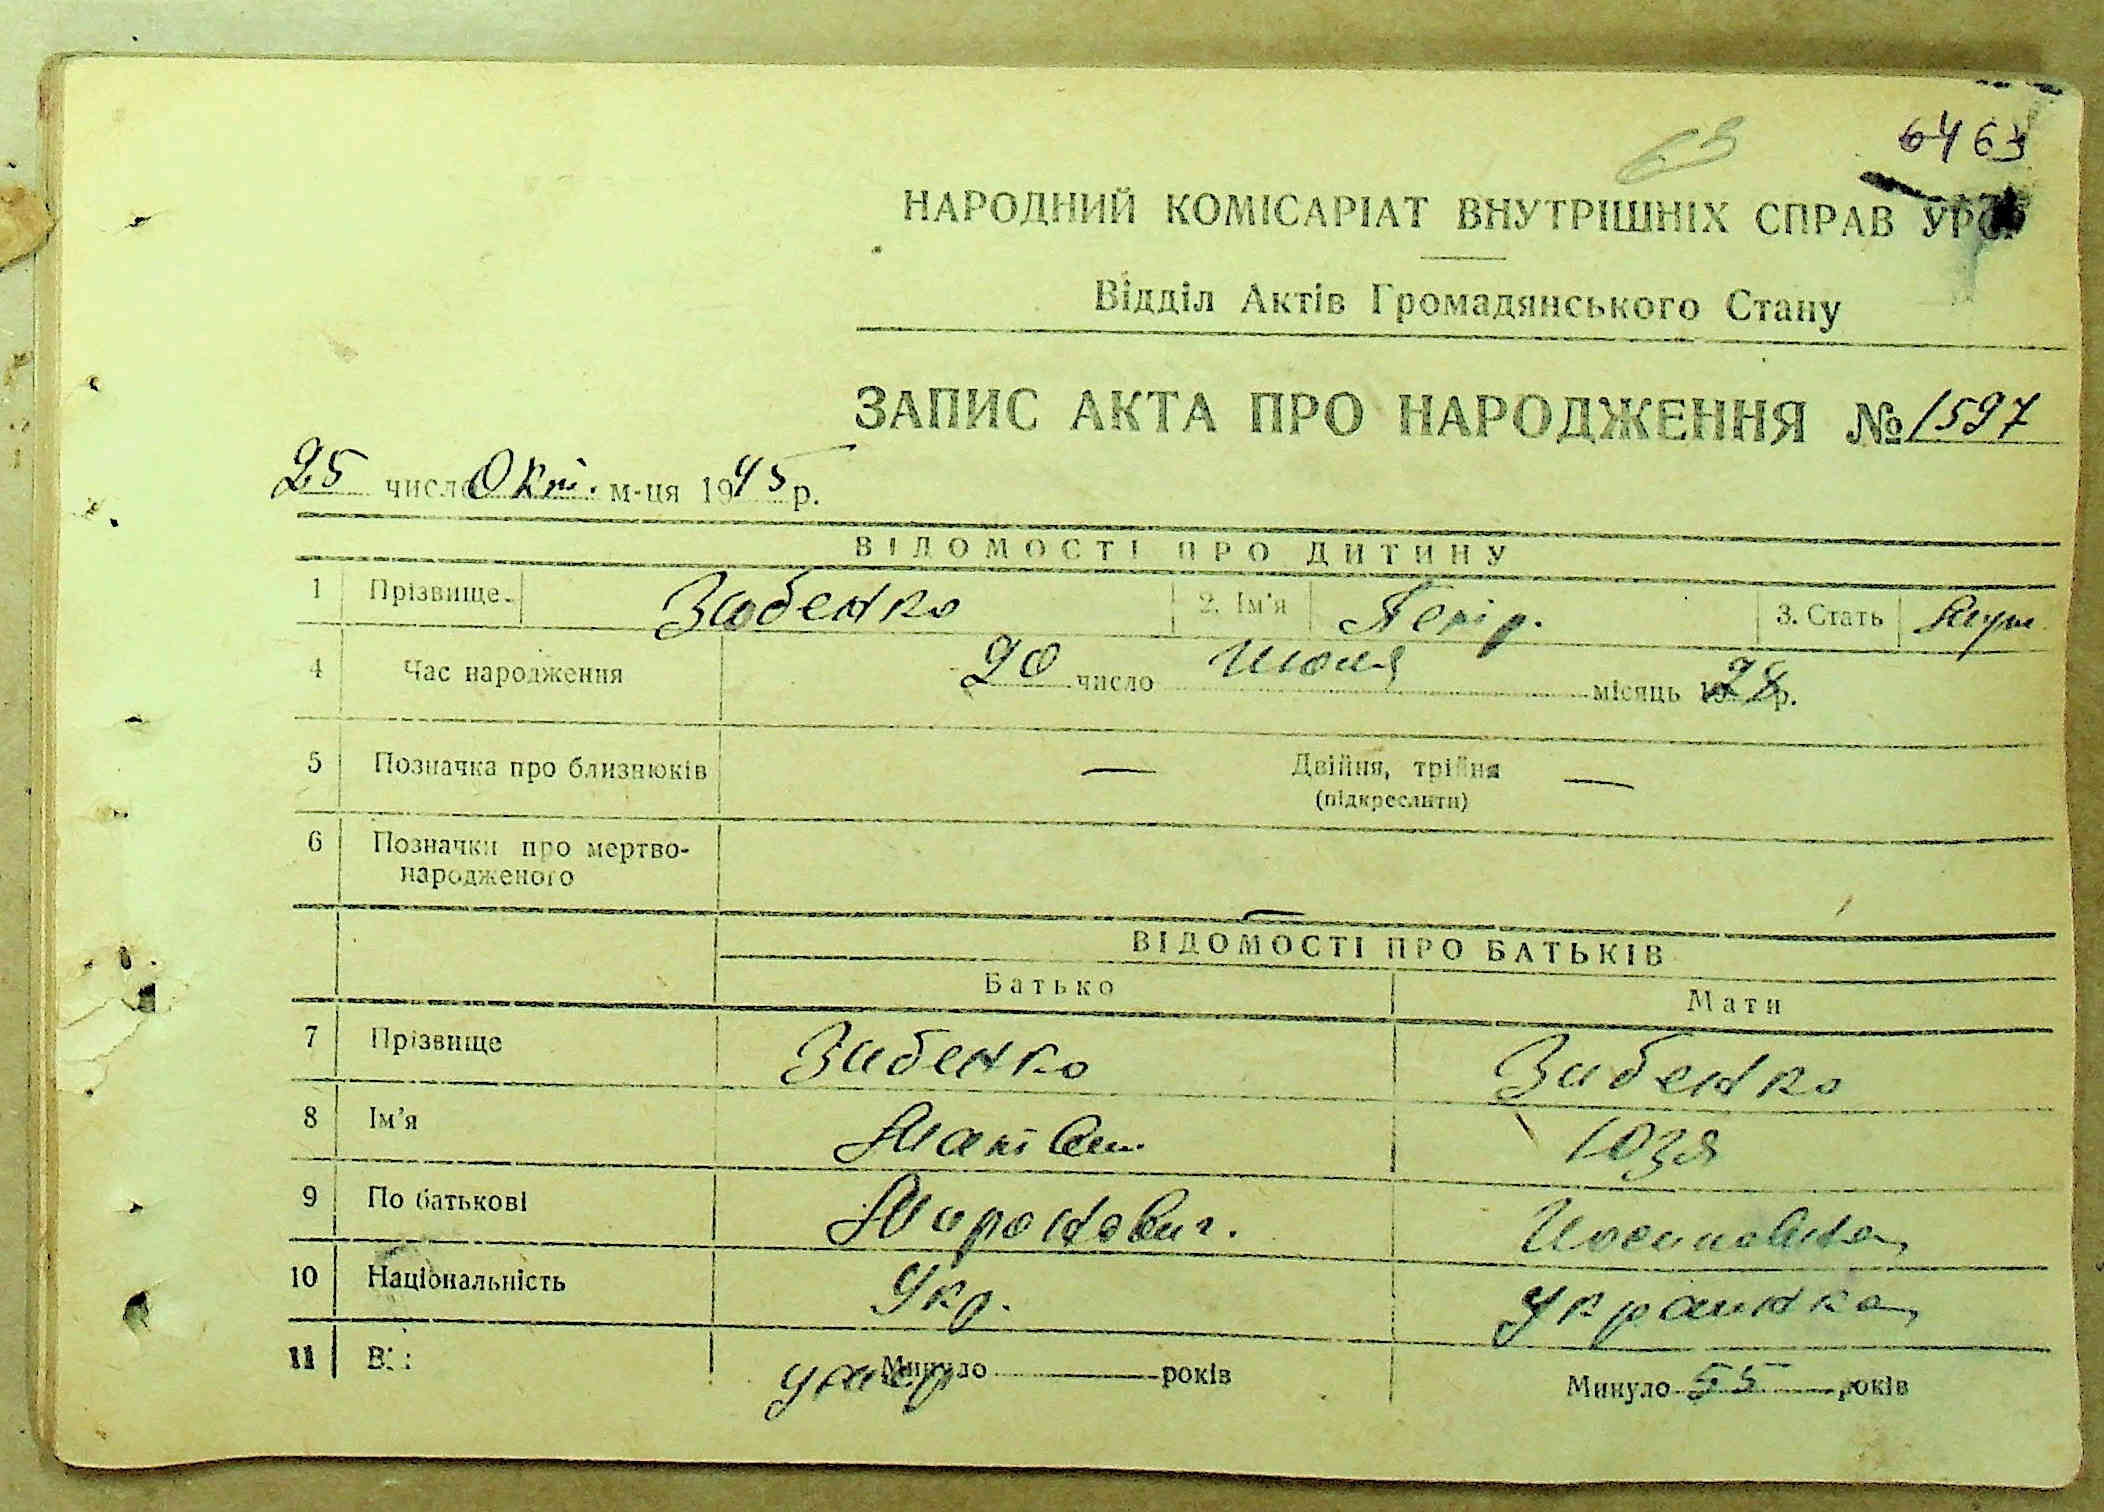 63
6463
НАРОДНИЙ КОМІСАРІАТ ВНУТРІШНІХ СПРАВ УРСР
Відділ Актів Громадянського Стану
ЗАПИС АКТА ПРО НАРОДЖЕННЯ № 1597
25 число Окт. м-ця 1945 р.
ВІДОМОСТІ ПРО ДИТИНУ
1 Прізвище Зибенко 2. Ім'я Петр. 3. Стать муж
4 Час народження 20 число Июля місяць 1928 р.
5 Позначка про близнюків — Двійня, трійня —
(підкреслити)
6 Позначки про мертво-
народженого —
ВІДОМОСТІ ПРО БАТЬКІВ
Батько Мати
7 Прізвище Зибенко Зибенко
8 Ім'я Матвей Юзя
9 По батькові Миронович. Иосиповна
10 Національність Укр. Украинка
11 Вік умер Минуло — років Минуло 55 років